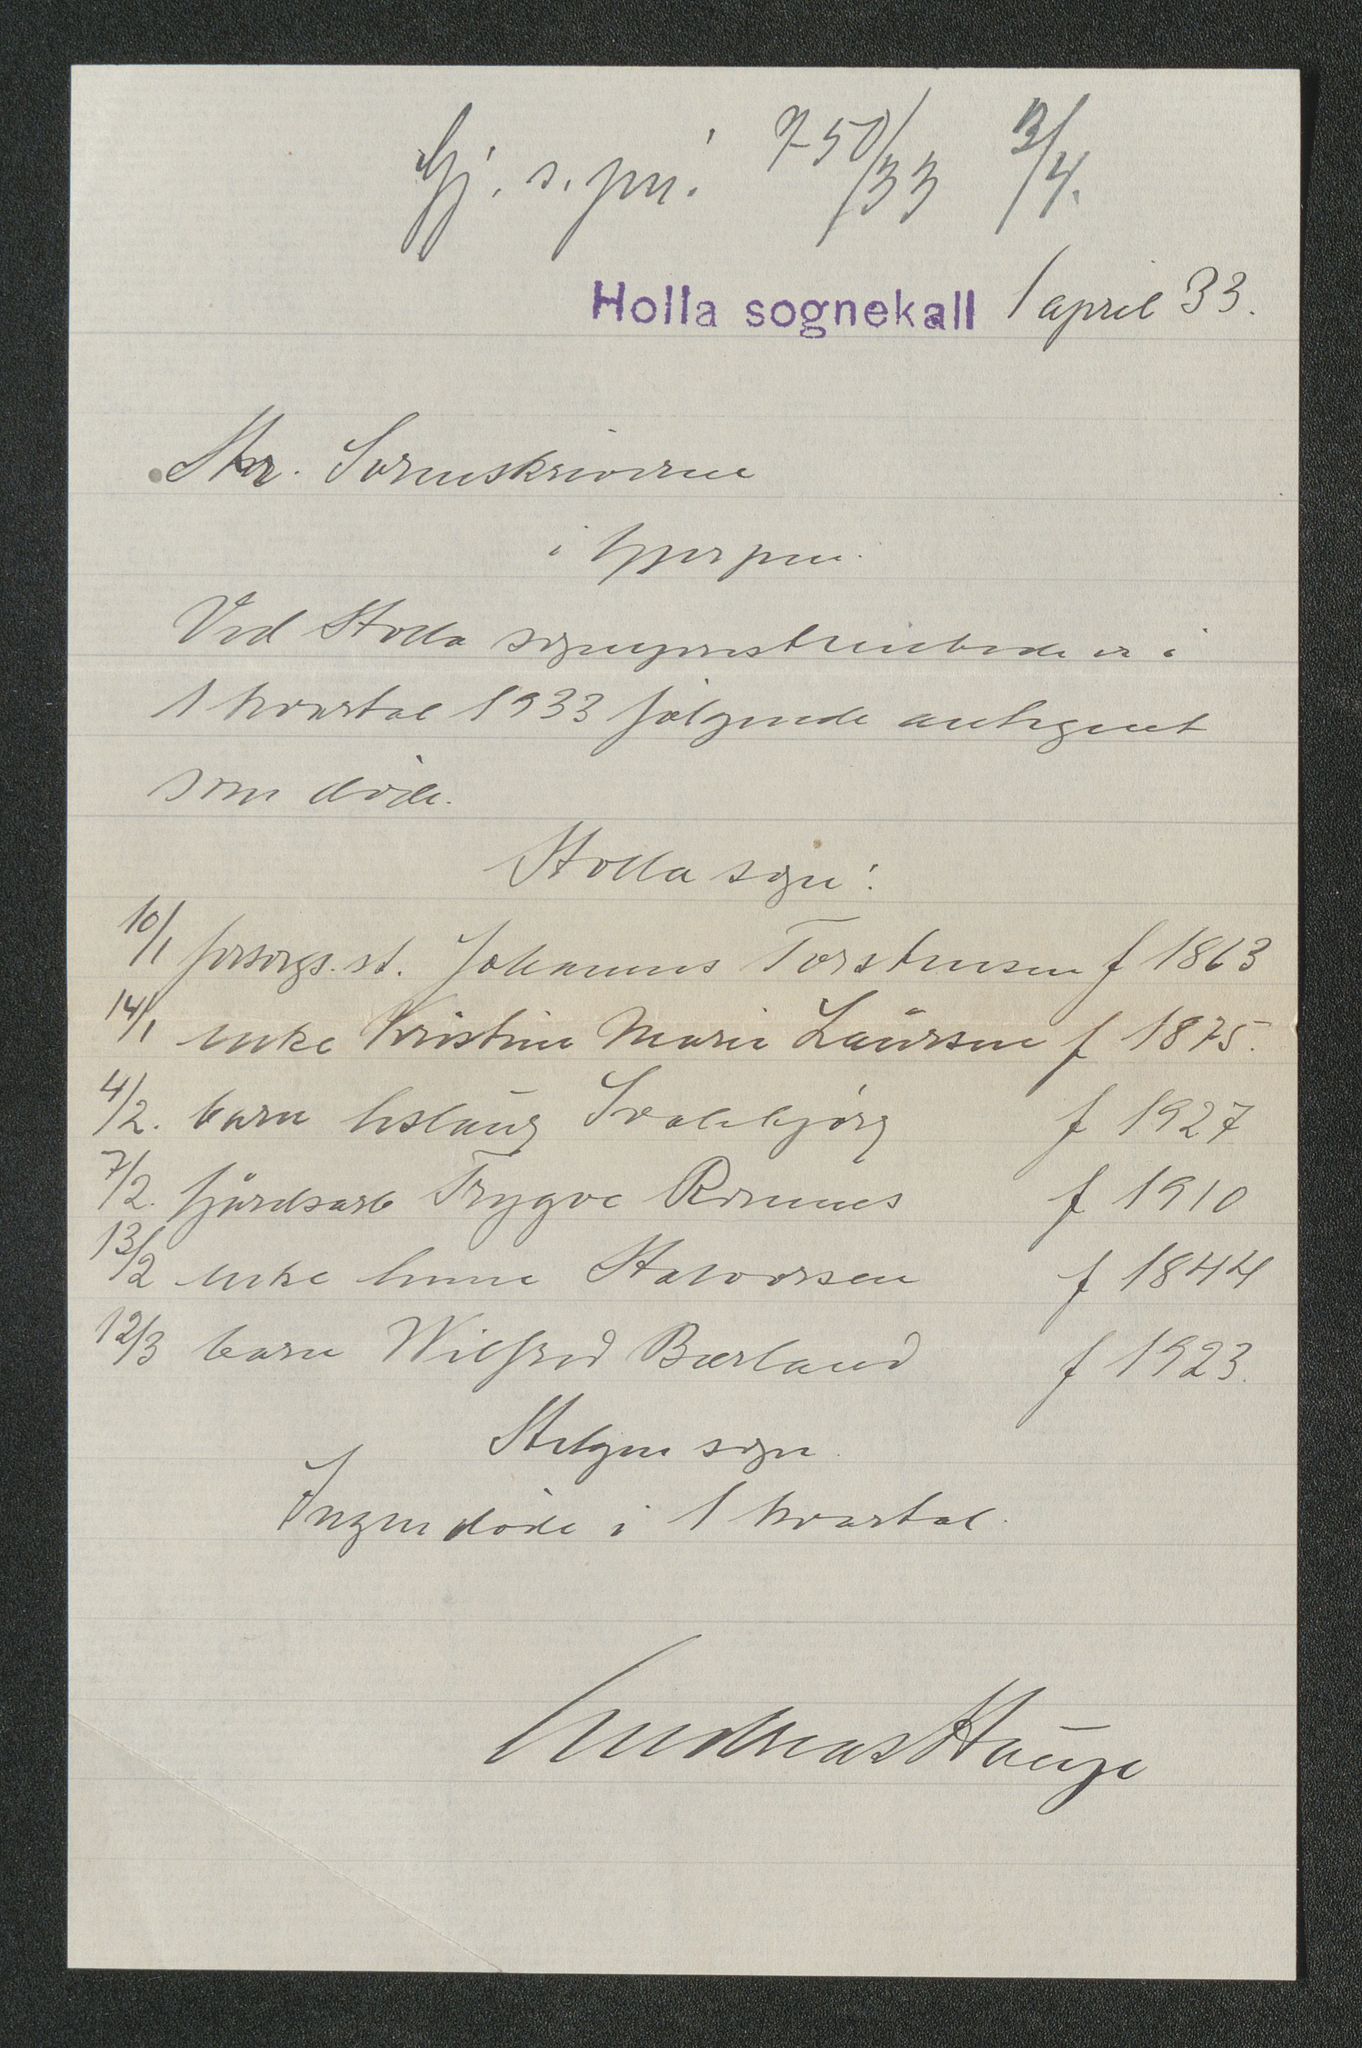 Gj. s. jnr. 750/33 3/4.
Holla sognekall 1 april 33.
Hr. Sorenskriveren
i Gjerpen.
Ved Holla sogneprestembede er i
1 kvartal 1933 følgende antegnet
som døde.
Holla sogn:
10/1 forsorgs. st. Johannes Torstensen f 1863
14/1 enke Kristine Marie Laursen f 1875.
4/2. barn Aslaug Svalebjørg f 1927
7/2. gårdsarb Trygve Romnes f 1910
13/2 enke Anne Halvorsen f 1844
12/3 barn Wilfred Bærland f 1923.
Helgen sogn.
Ingen døde i 1 kvartal.
Andreas Hauge